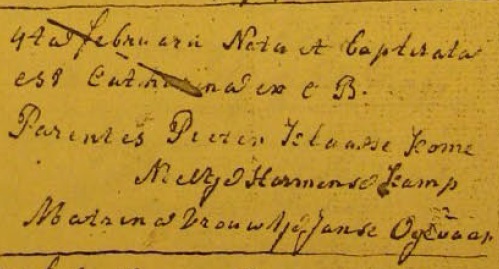 4ta februarii Nata et baptizata
est Catharina ex C B.
Parentes Pieter Klaasse Kome
Neeltje Harmense Kamp
Matrina Vrouwtje Janse